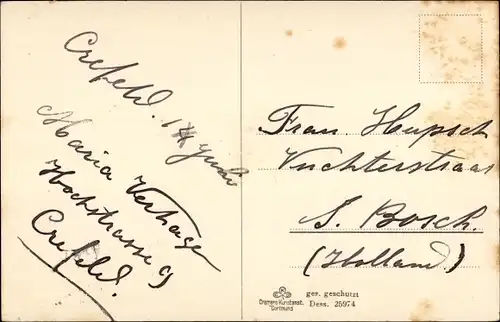 Crefeld. 14 Juli
Maria Verhagen
Hochstrasse 9
Crefeld.
Frau Hupsch
Vuchterstraat
S. Bosch.
(Holland.)
Cramers Kunstanst.
Dortmund
ger. geschutzt
Dess. 25974